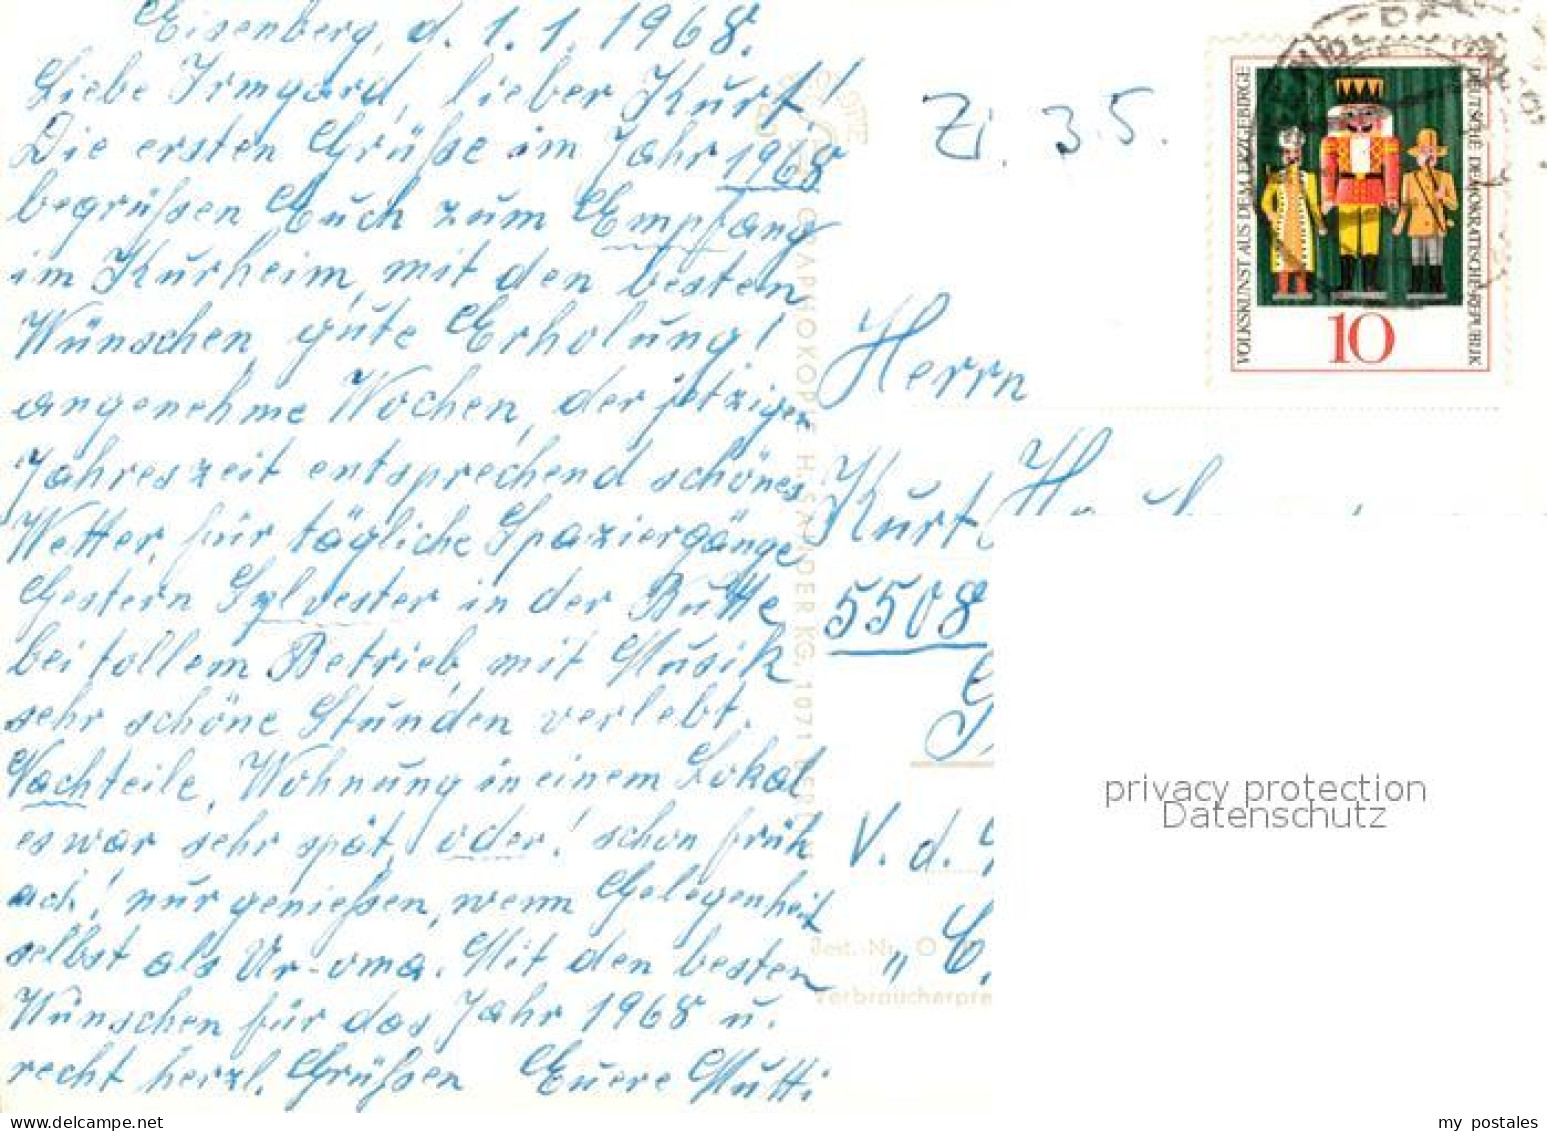 Eisenberg, d. 1.1.1968.
Liebe Irmgard, lieber Kurt!
Die ersten Grüße im Jahr 1968
begrüßen Euch zum Empfang
im Kurheim, mit den besten
Wünschen, gute Erholung!
angenehme Wochen, der jetzigen
Jahreszeit entsprechend schönes
Wetter, für tägliche Spaziergänge
Gestern Sylvester in der Butte
bei tollem Betrieb, mit Musik
sehr schöne Stunden verlebt.
Nachteile, Wohnung in einem Lokal
es war sehr spät, oder! schon früh
ach! nur genießen, wenn Gelegenheit
selbst als Ur-oma. Mit den besten
Wünschen für das Jahr 1968 u.
recht herzl. Grüßen Euere Mutti
Zi. 3.5.
Herrn
Kurt
5508
V. d.
VOLKSKUNST AUS DEM ERZGEBIRGE
DEUTSCHE DEMOKRATISCHE REPUBLIK
10
H. SANDER KG, 1071
Best.-Nr. O
Verbraucherpre
privacy protection
Datenschutz
my postales